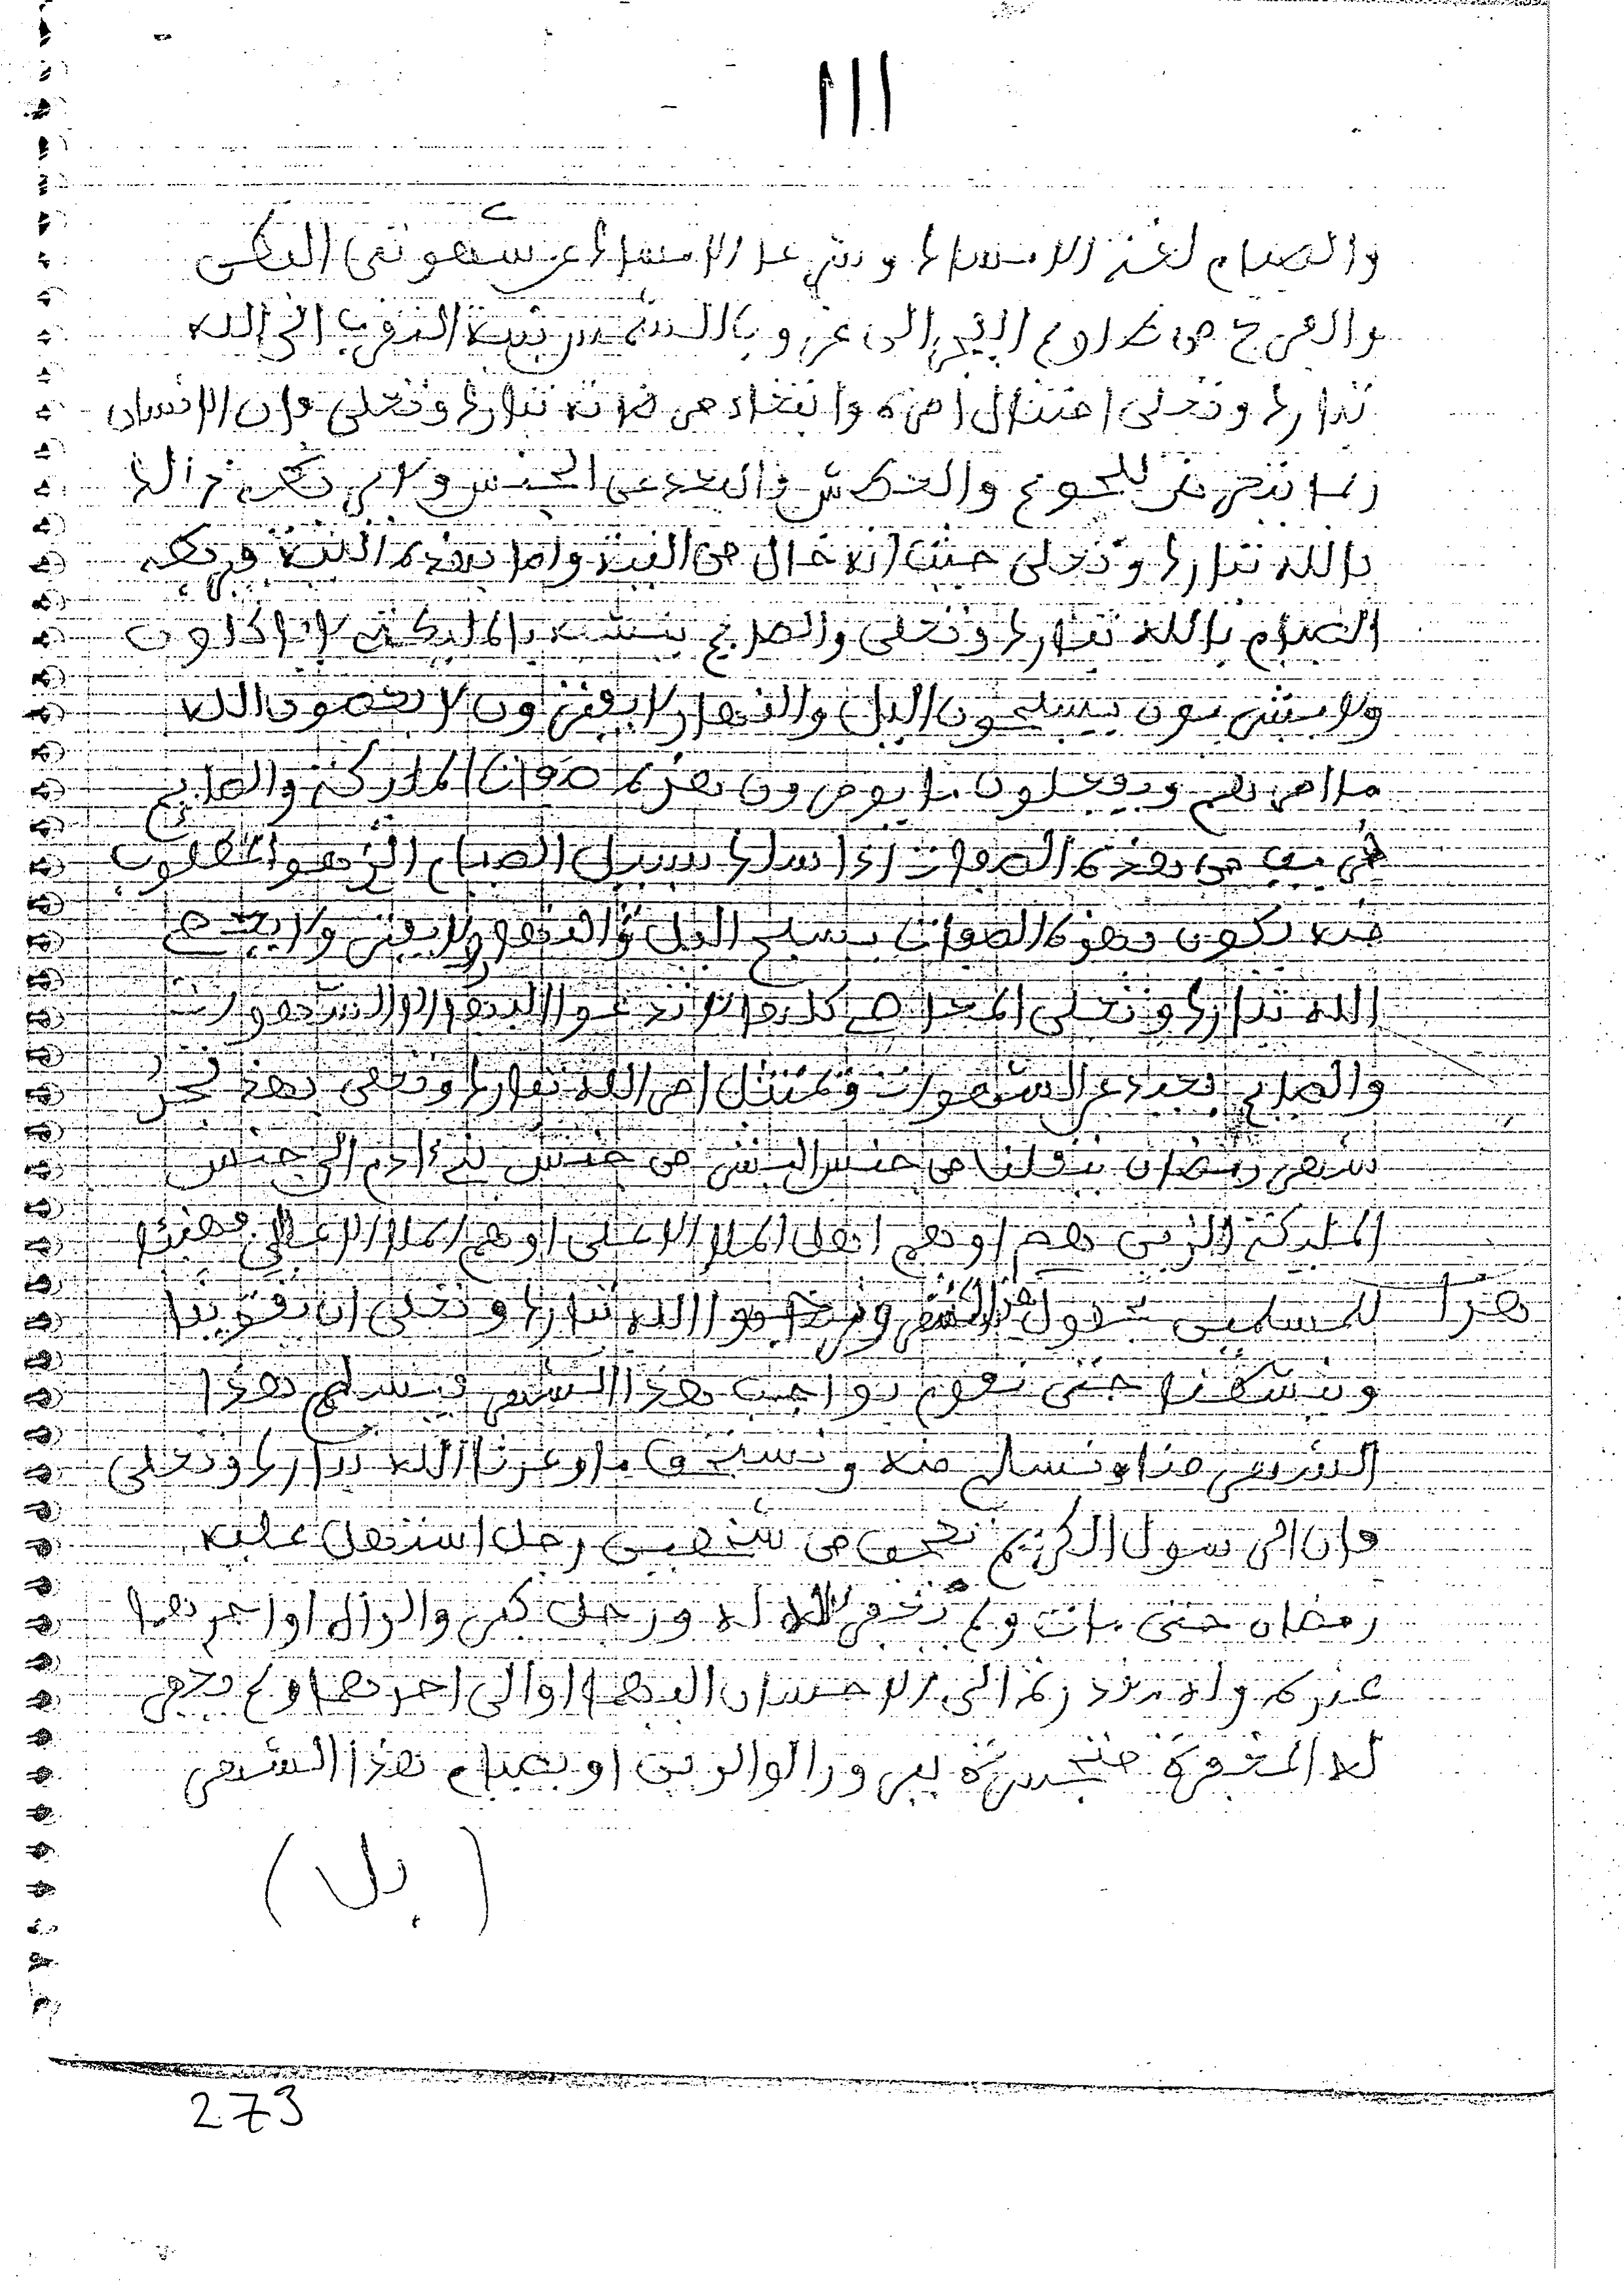 ١١١
والصيام لغة الامساك وشرعا الامساك عن شهوتي البطن
والفرج من طلوع الفجر الى غروب الشمس بنية التقرب الى الله
تبارك وتعلى امتثال امره وابتغاء مرضاته تبارك وتعلى فإن الإنسان
ربما يتعرض للجوع والعطش والبعد عن الجنس ولم يكن ذالك
بالله تبارك وتعلى حيث انه خال من النية واما بهذه النية فربطه
الصيام بالله تبارك وتعلى والصايم يتشبه بالمليكة لا ياكلون
ولا يشربون يسبحون اليل والنهار لا يفترون لا يعصون الله
ما امرهم ويفعلون ما يومرون هذه صفات المليكة والصايم
قريب من هذه الصفات اذا سلك سبيل الصيام الذي هو المطلوب
منه يكون بهذه الصفات يسبح اليل والنهار ولا يفتر ولا يعصي
الله تبارك وتعلى المعاصي كلها تدعوا اليها الشهوات
والصايم بعيد عن الشهوات وممتثل امر الله تبارك وتعلى بهذ فنحن
شهر رمضان ينقلنا من جنس البشر من جنس بني ءادم الى جنس
المليكة الذين هم اوهم اهل الملإ الاعلى اوهم الملأ الاعلى فهنيئا
هذا للمسلمين بحلول هذا الشهر ونرجوا الله تبارك وتعلى ان يقوينا
وينشطنا حتى نقوم بواجب هذا الشهر فيسلم هذا
الشهر منا ونسلم منه ونستحق ما وعدنا الله تبارك وتعلى
فان الرسول الكريم تعجب من شخصين رجل استهل عليه
رمضان حتى بات ولم يغفر الله له ورجل كبر والداه او احدهما
عنده وله يد في الاحسان اليهما اوالى احدهما ولم يغفر
له المغفرة متيسرة ببرور الوالدين او بصيام هذا الشهر
(بل)
273